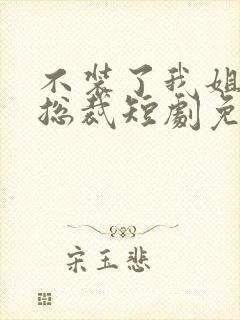 不装了我姐
总裁短劇免
宋玉悲